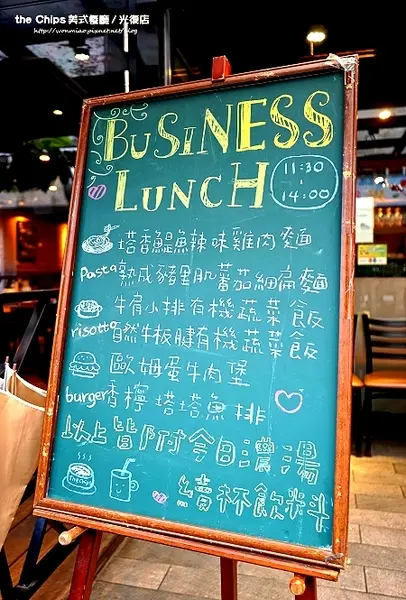 the Chips 美式餐廳 / 光復店
http://wonmiao.pixnet.net/blog
BUSINESS
LUNCH
11:30
14:00
塔香鯷魚辣味雞肉麵
Pasta 熟成豬里肌蕃茄細扁麵
牛肩小排有機蔬菜飯
risotto 自然牛板腱有機蔬菜飯
歐姆蛋牛肉堡
burger 香檸塔塔魚排
以上皆附今日濃湯
續杯飲料